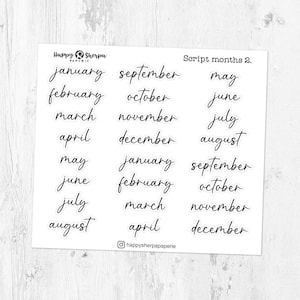 Happy Sherpa
PAPERIE
Script months 2.
january
february
march
april
may
june
july
august
september
october
november
december
january
february
march
april
may
june
july
august
september
october
november
december
happysherpapaperie